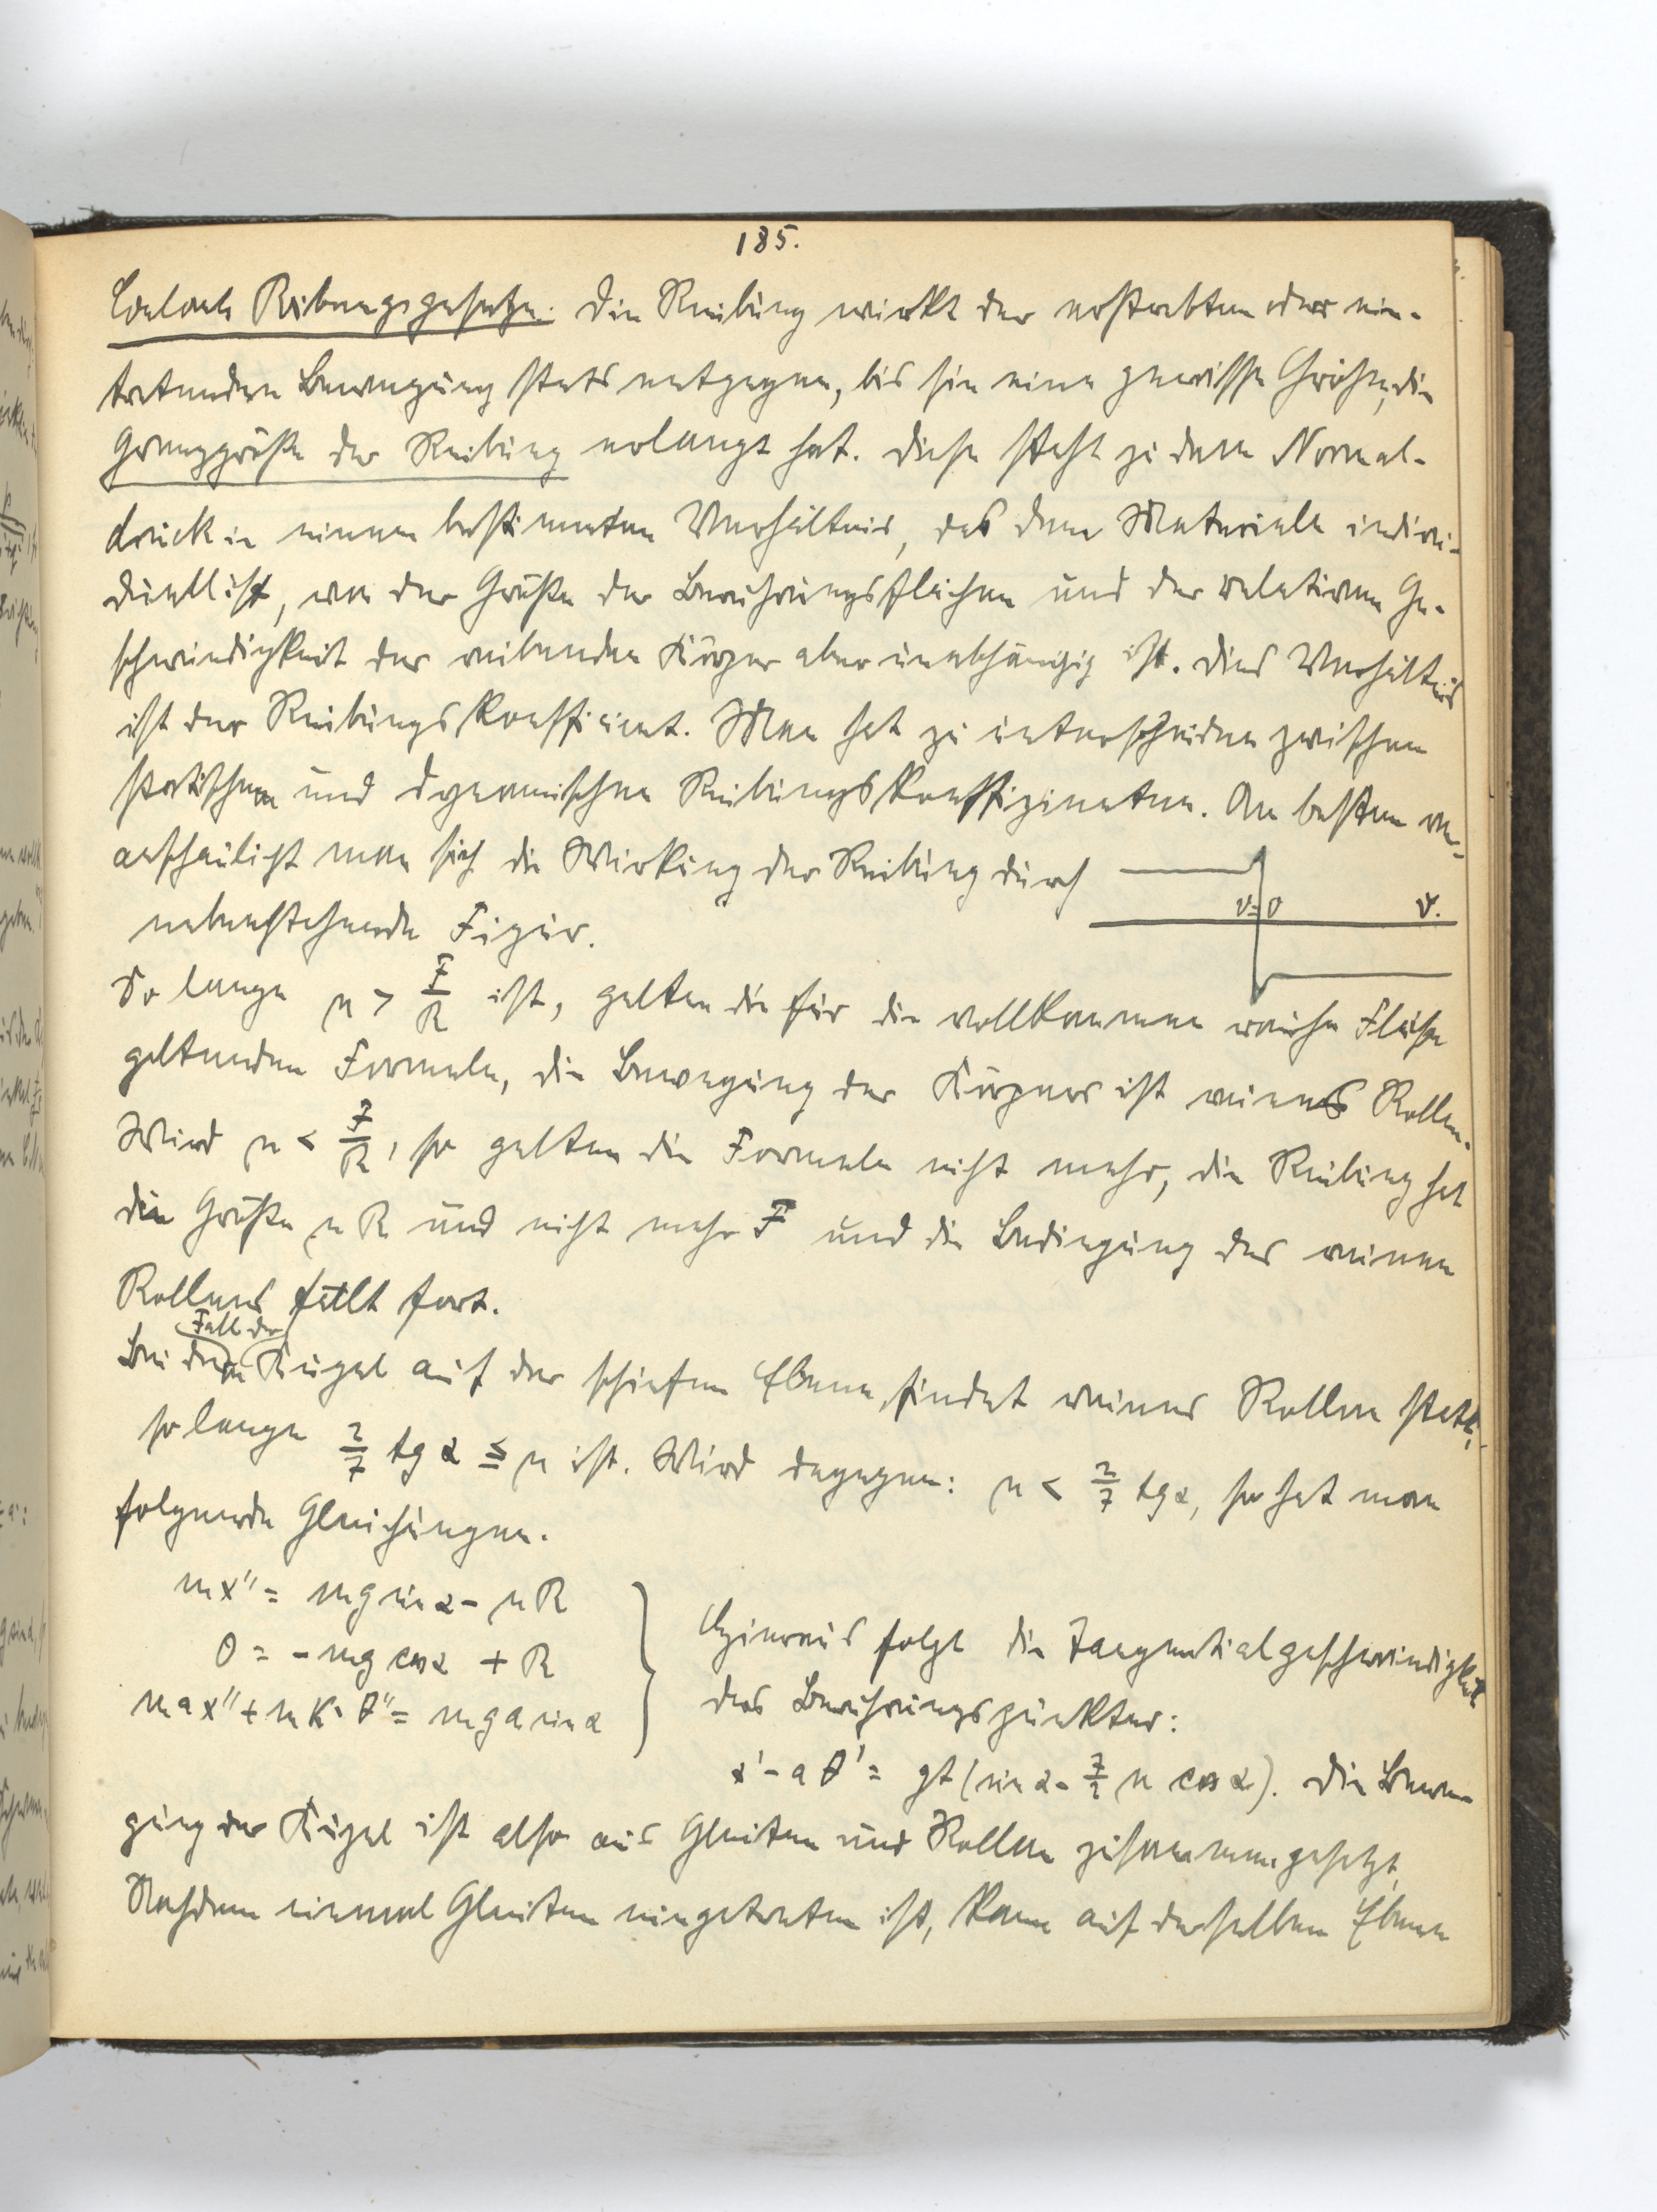 185.
Coulomb Reibungsgesetze. Die Reibung wirkt der erstrebten oder ein-
tretenden Bewegung stets entgegen, bis sie eine gewisse Größe, die
Grenzgröße der Reibung erlangt hat. Diese steht zu dem Normal-
druck in einem bestimmten Verhältnis, das dem Materiale indivi-
duell ist, von der Größe der Berührungsflächen und der relativen Ge-
schwindigkeit der reibenden Körper aber unabhängig ist. Dies Verhältnis
ist der Reibungskoeffizient. Man hat zu unterscheiden zwischen
statischem und dynamischen Reibungskoeffizienten. Am besten ver-
anschaulicht man sich die Wirkung der Reibung durch
v=0 v.
nebenstehende Figur.
So lange μ > F/R ist, gelten die für die vollkommen rauhe Fläche
geltenden Formeln, die Bewegung des Körpers ist reines Rollen.
Wird μ < F/R, so gelten die Formeln nicht mehr, die Reibung hat
die Größe μR und nicht mehr F und die Bedingung des reinen
Rollens fällt fort.
Fall der
Bei dem Kugel auf der schiefen Ebene, findet reines Rollen statt,
so lange 2/7 tg α ≦ μ ist. Wird dagegen: μ < 2/7 tg α, so hat man
folgende Gleichungen.
mx'' = mg sin α - μR
0 = - mg cos α + R
max'' + mK² θ'' = mga sin α
Hieraus folgt die Tangentialgeschwindigkeit
des Berührungspunktes:
x' - aθ' = gt (sin α - 7/2 μ cos α). Die Bewe-
gung der Kugel ist also aus Gleiten und Rollen zusammengesetzt.
Nachdem einmal Gleiten eingetreten ist, kann auf derselben Ebene